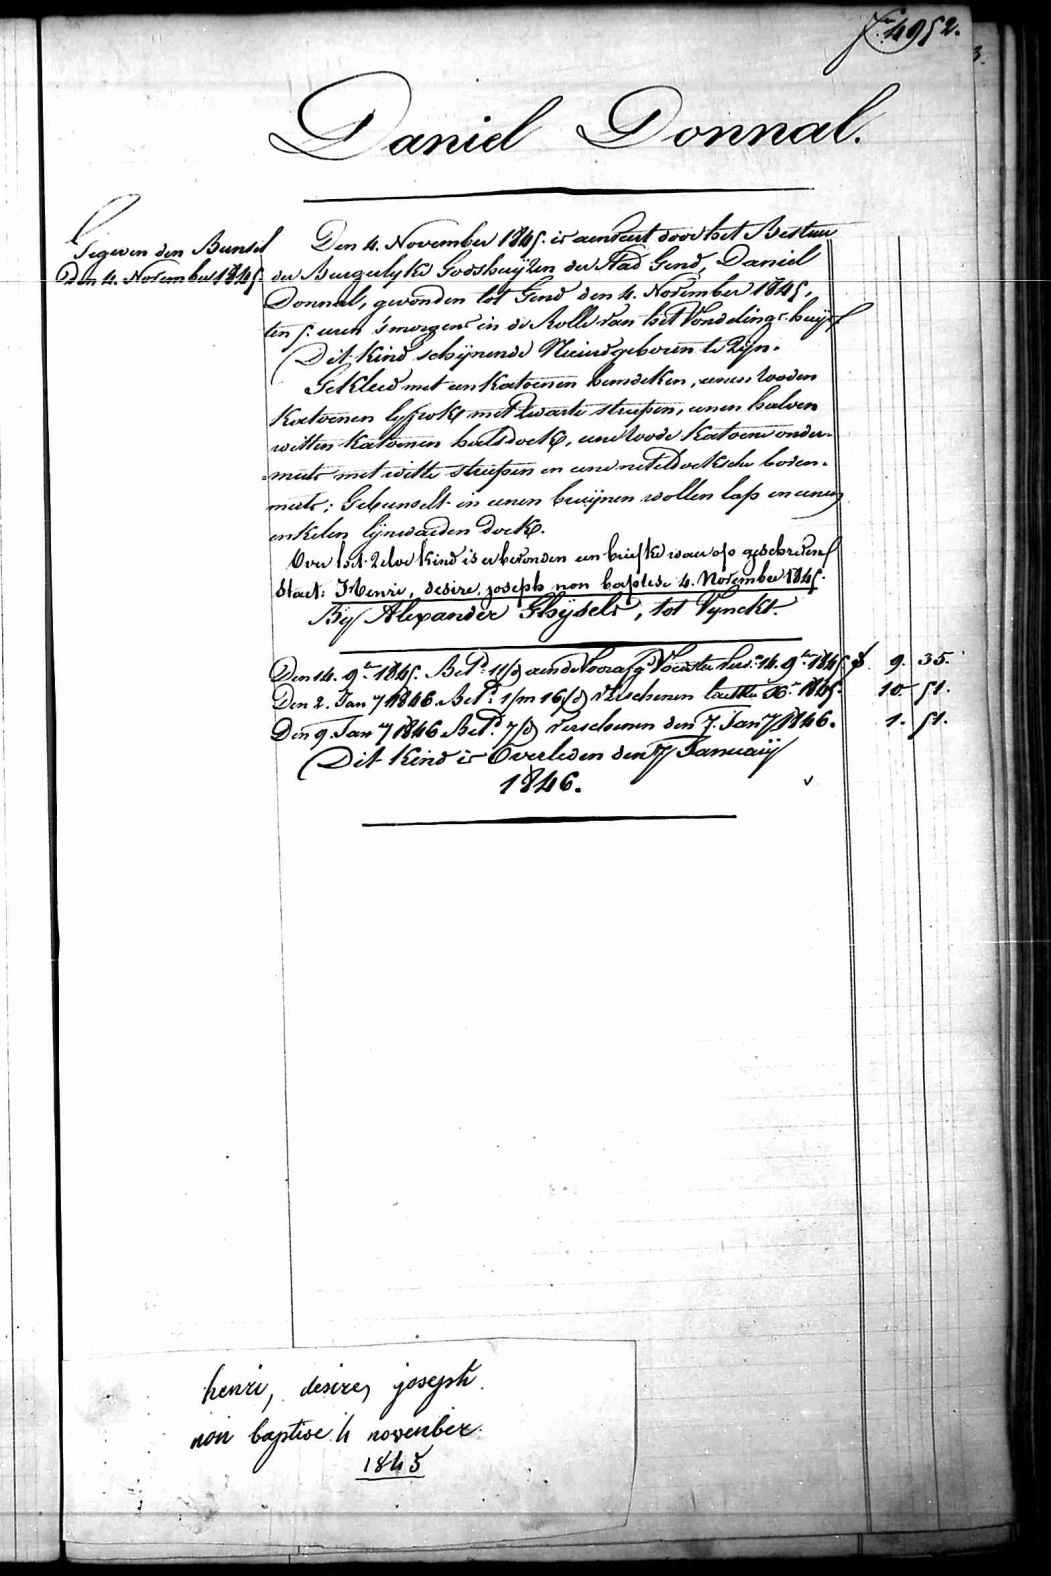 4952.
Daniel Donnal.
Gegeven den Bunsel
Den 4. November 1845.
Den 4. November 1845. is aenveert door het Bestuer
der Burgerlyke Godshuijzen der Stad Gend, Daniel
Donnal, gevonden tot Gend den 4. November 1845,
ten 5. uren 's morgens in de Rolle van het Vondelings-huijs
Dit kind schijnende Nieuwgeboren te Zijn.
Gekleed met een Katoenen hemdeken, eenen rooden
Katoenen lyfrok met Zwarte streepen, eenen halven
witten Katoenen halsdoek, eene roode Katoene onder-
=muts met witte streepen en eene neteldoeksche boven-
muts; Gebunselt in eenen bruijnen wollen lap en eenen
enkelen lijnwaeden doek.
Over het Zelve Kind is er bevonden een briefke waer op geschreven
Staet: Henri, desire, joseph non baptise 4. November 1845.
Bij Alexander Ghijsels, tot Vynckt.
Den 14. 9.re 1845. Bet.d 11/d aen de voorafg.de Voedster vers.n 14. 9.re 1845. f. 9. 35.
Den 2. Jan.y 1846. Bet.d 1/m 16/d verschenen laetste X.re 1845. 10. 51.
Den 9. Jan.y 1846 Bet.d 7/d verschenen den 7. Jan.y 1846. 1. 51.
Dit kind is Overleden den 7 Januarij
1846.
henri, desire, joseph
non baptise 4 november
1845